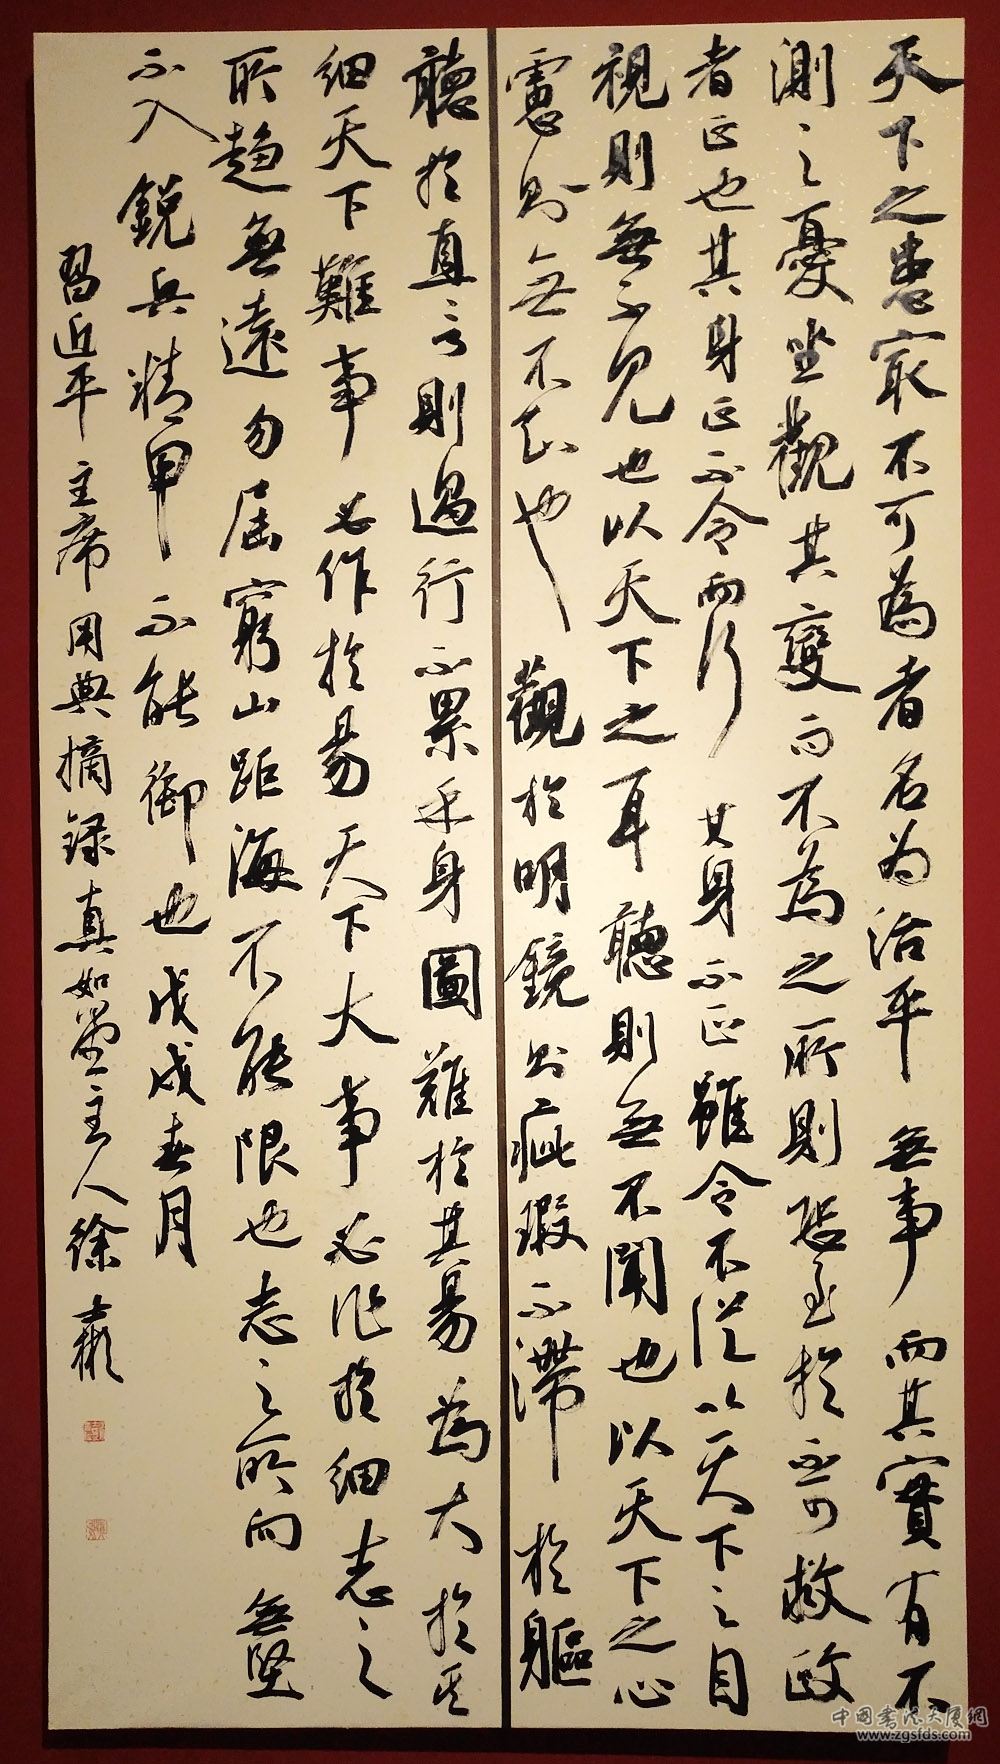 天下之患最不可為者名為治平無事而其實有不
測之憂坐觀其變而不為之所則恐至於不可救政
者正也其身正不令而行其身不正雖令不從以天下之目
視則無不見也以天下之耳聽則無不聞也以天下之心
慮則無不知也觀於明鏡則疵瑕不滯於軀
聽於直言則過行不累乎身圖難於其易為大於其
細天下難事必作於易天下大事必作於細志之
所趨無遠勿屆窮山距海不能限也志之所向無堅
不入銳兵精甲不能御也戊戌春月
習近平主席用典摘録真如堂主人徐彬
中国书法大厦網
www.zgsfds.com